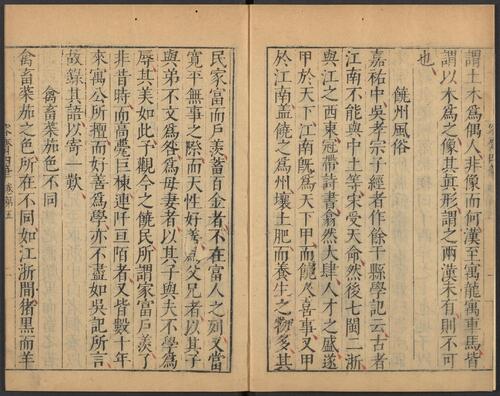 謂土木為偶人非像而何漢至寓龍寓車馬皆
謂以木為之像其真形謂之兩漢未有則不可
也
饒州風俗
嘉祐中吳孝宗子經者作餘干縣學記云古者
江南不能與中土等宋受天命然後七閩二浙
與江之西東冠帶詩書翕然大肆人才之盛遂
甲於天下江南既為天下甲而饒人喜事又甲
於江南蓋饒之為州壤土肥而養生之物多其
民家富而戶羨蓄百金者不在富人之列又當
寬平無事之際而天性好善為父兄者以其子
與弟不文為咎為母妻者以其子與夫不學為
辱其美如此予觀今之饒民所謂家富戶羨了
非昔時而高甍巨棟連阡亘陌者又皆數十年
來寓公所擅而好善為學亦不盡如吳記所言
故錄其語以寄一歎
禽畜菜茄色不同
禽畜菜茄之色所在不同如江浙間猪黑而羊